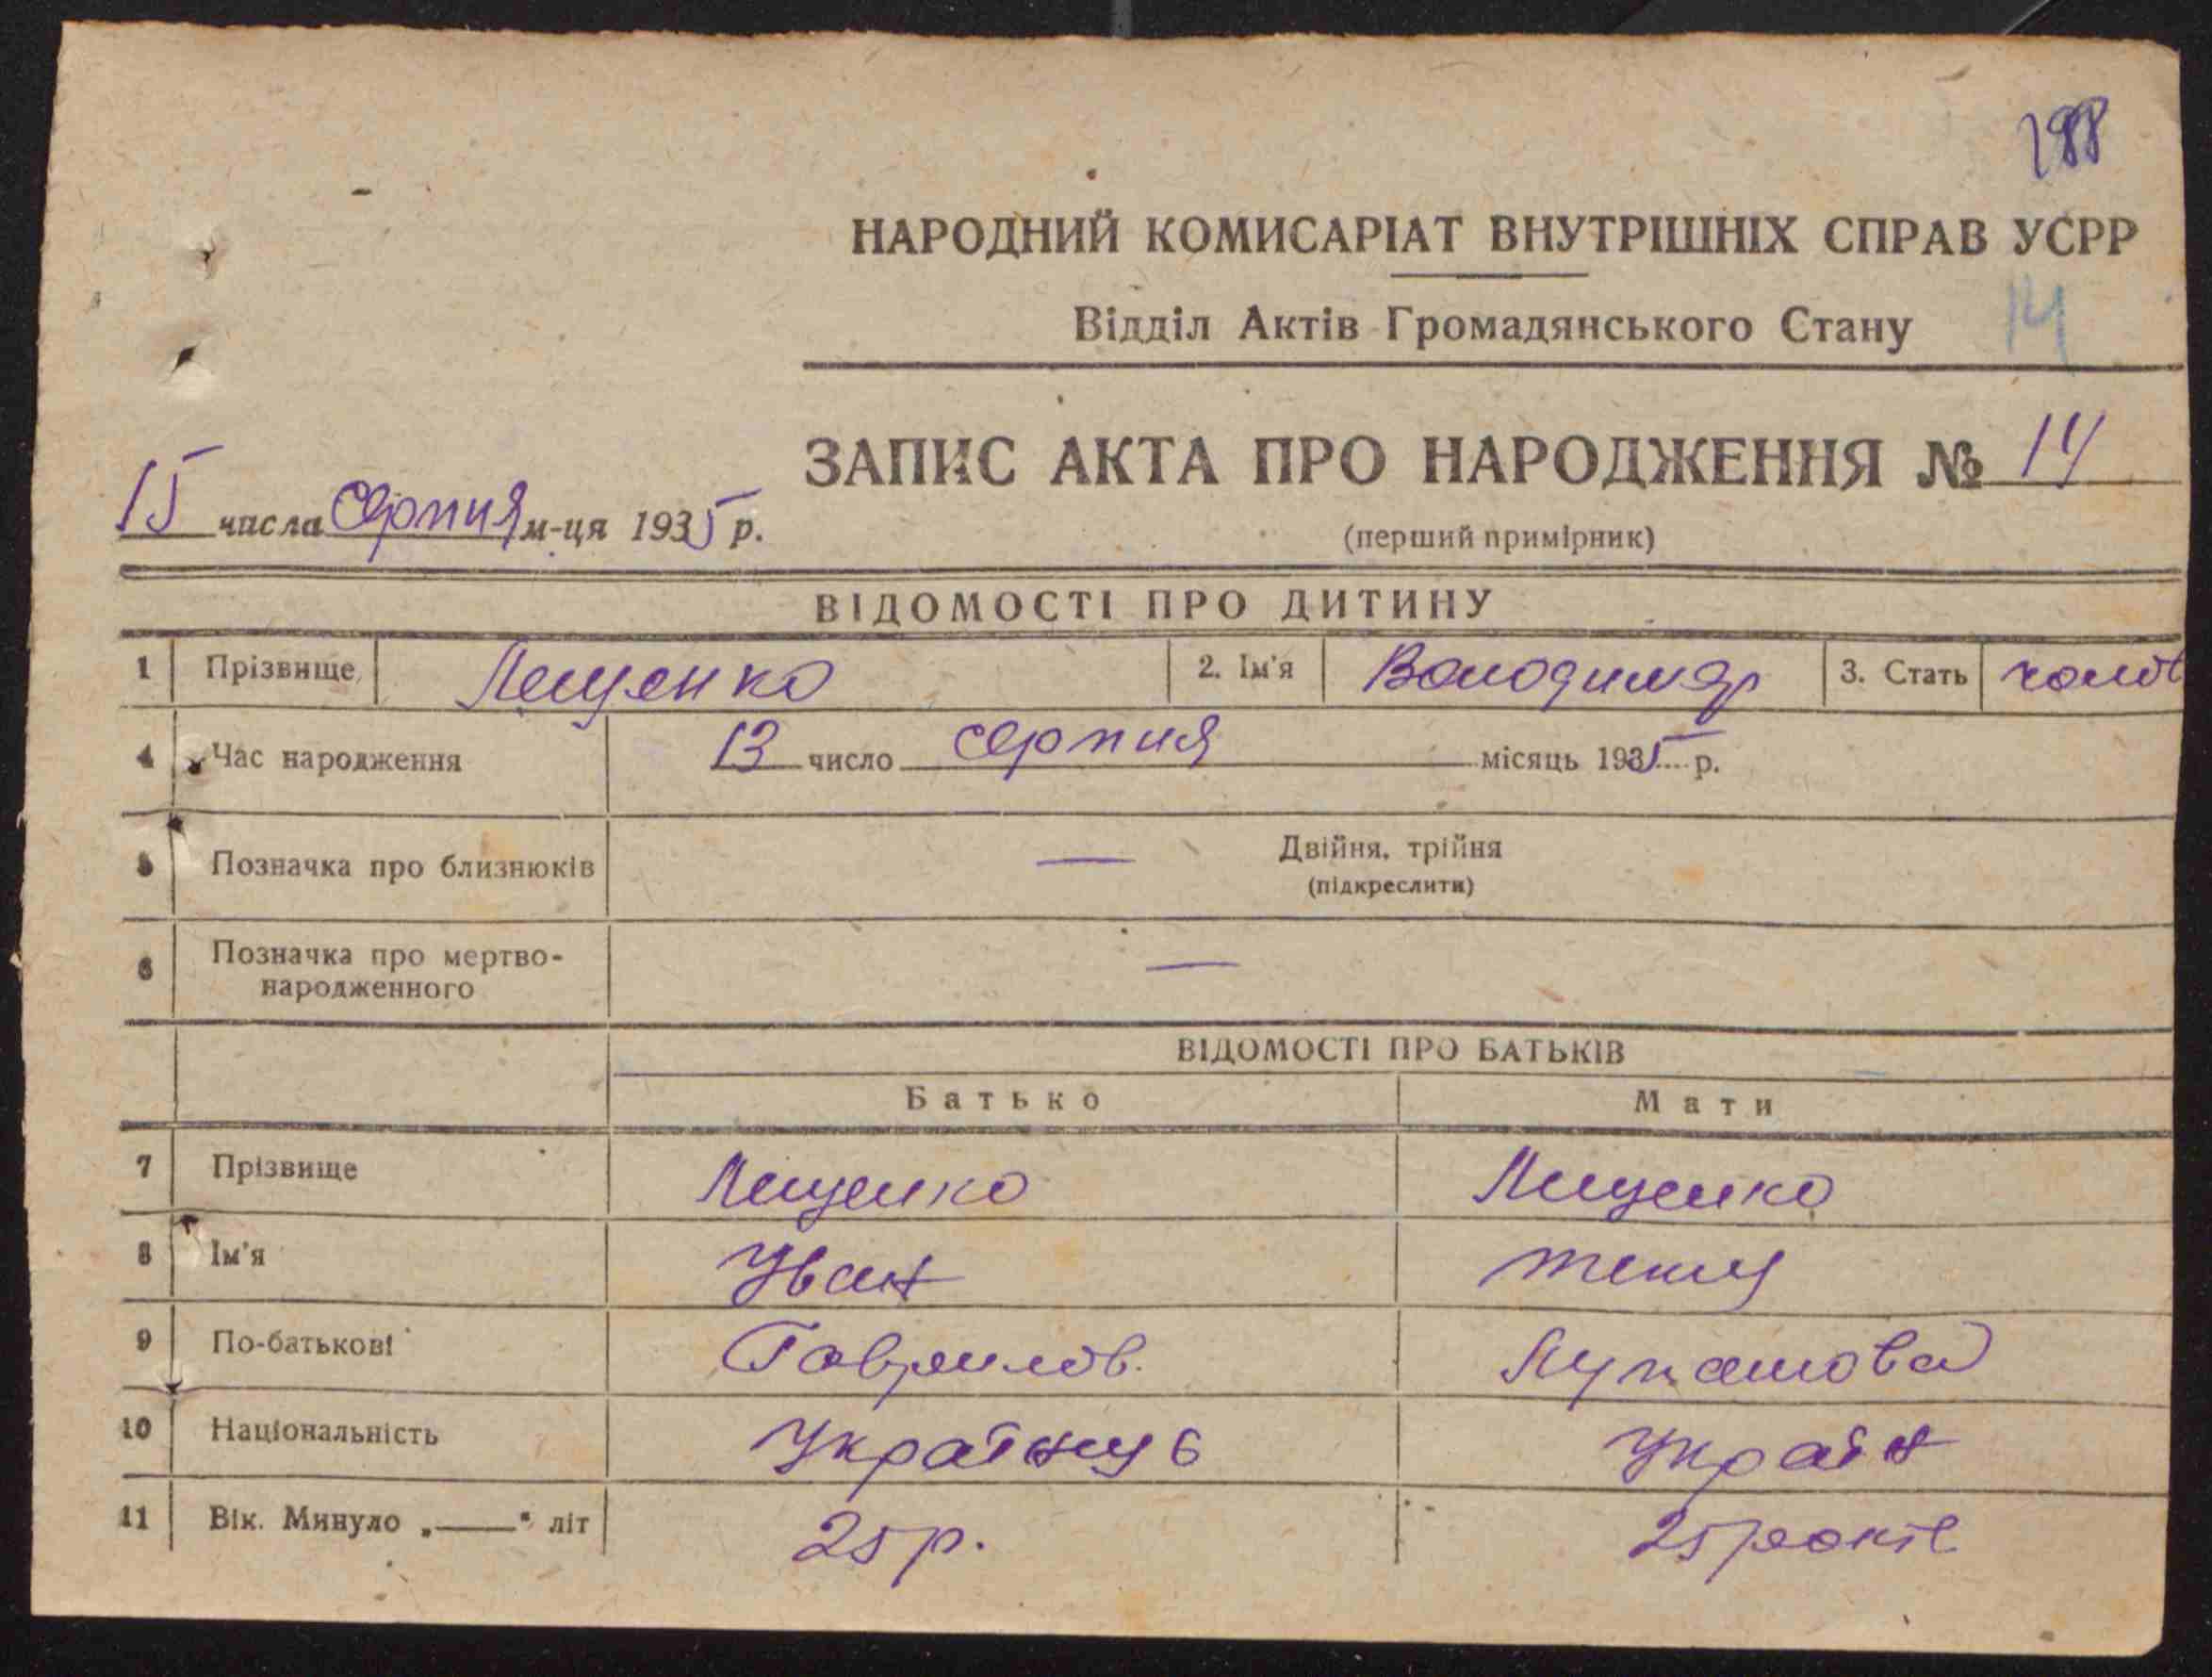 188
НАРОДНИЙ КОМИСАРІАТ ВНУТРІШНІХ СПРАВ УСРР
Відділ Актів Громадянського Стану 14
ЗАПИС АКТА ПРО НАРОДЖЕННЯ № 14
15 числа Серпня м-ця 1935 р.
(перший примірник)
ВІДОМОСТІ ПРО ДИТИНУ
1 Прізвище Лещенко 2. Ім'я Володимер 3. Стать чолов
4 Час народження 13 число серпня місяць 1935 р.
5 Позначка про близнюків — Двійня, трійня
(підкреслити)
6 Позначка про мертво-
народженного —
ВІДОМОСТІ ПРО БАТЬКІВ
Батько Мати
7 Прізвище Лещенко Лещенко
8 Ім'я Іван
9 По-батькові Гаврилов.
10 Національність Українць Україн
11 Вік. Минуло „——" літ 25 р. 25 років